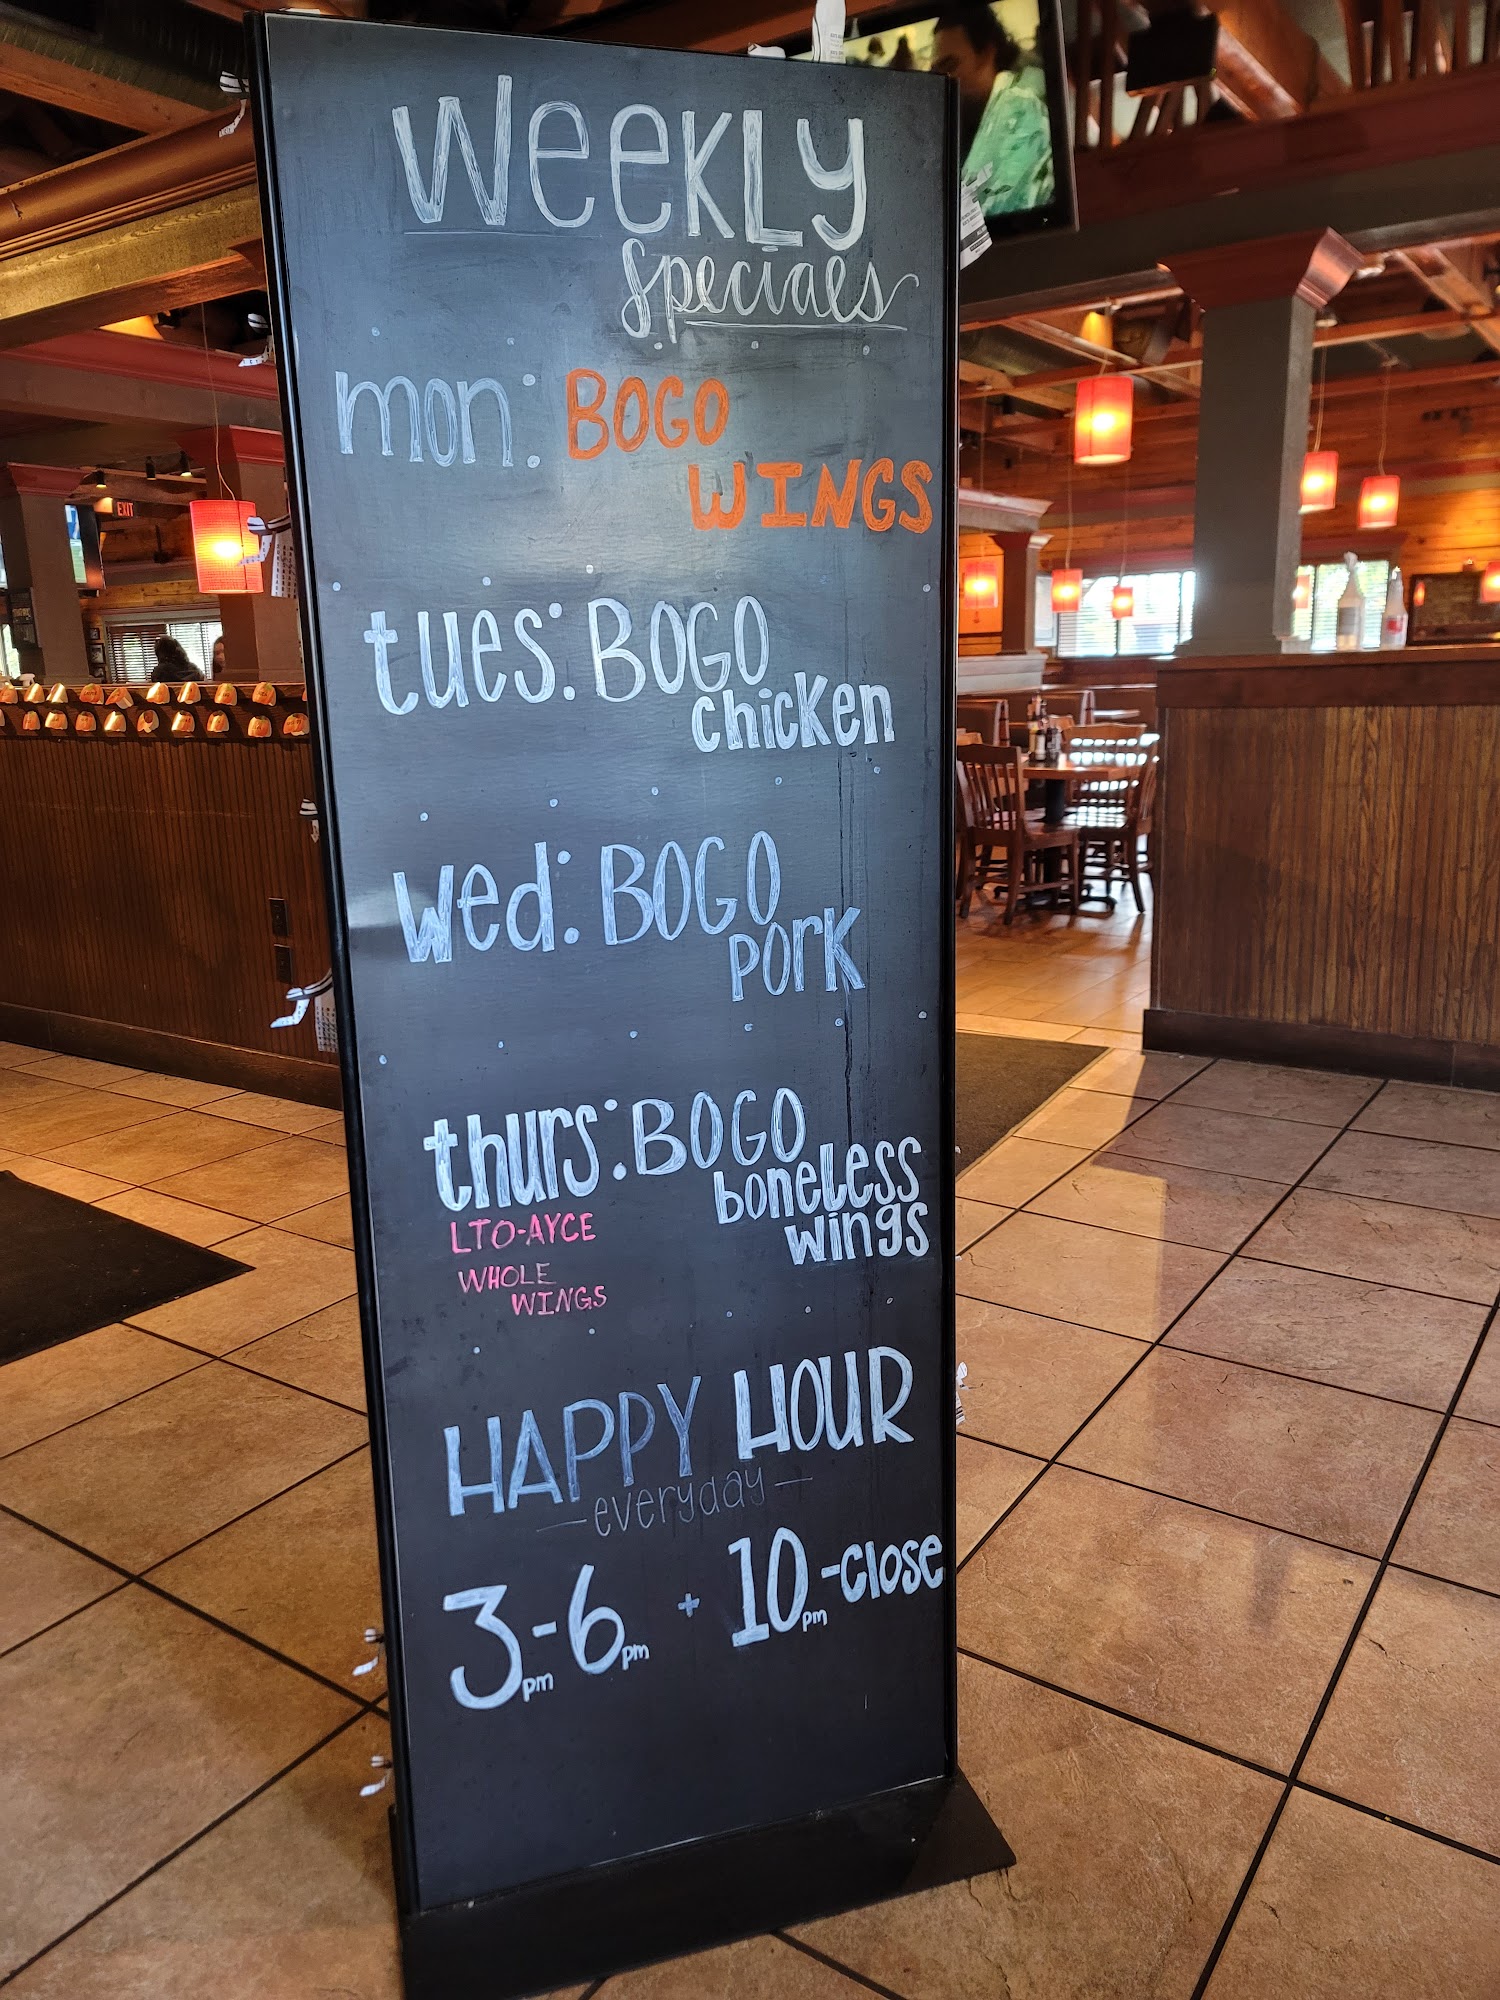 WEEKLY
Specials
mon: BOGO
WINGS
tues: BOGO
chicken
wed: BOGO
pork
thurs: BOGO
boneless
wings
LTO-AYCE
WHOLE
WINGS
HAPPY HOUR
-everyday-
3pm-6pm + 10pm-close
EXIT